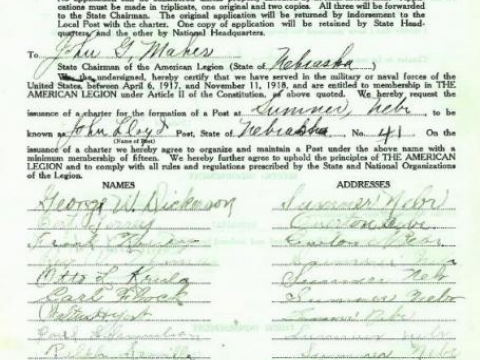 cations must be made in triplicate, one original and two copies. All three will be forwarded
to the State Chairman. The original application will be returned by Indorsement to the
Local Post with the charter. One copy of application will be retained by State Head-
quarters, and the other by National Headquarters.
To John G. Maher
State Chairman of the American Legion (State of Nebraska)
We, the undersigned, hereby certify that we have served in the military or naval forces of the
United States, between April 6, 1917, and November 11, 1918, and are entitled to membership in THE
AMERICAN LEGION under Article II of the Constitution, as above quoted. We hereby request the
issuance of a charter for the formation of a Post at Sumner, Nebr to be
known as John Lloyd Post, State of Nebraska No. 41 On the
(Name of Post)
issuance of a charter we hereby agree to organize and maintain a Post under the above name with a
minimum membership of fifteen. We hereby further agree to uphold the principles of THE AMERICAN LEGION
and to comply with all rules and regulations prescribed by the State and National Organizations
of the Legion.
NAMES ADDRESSES
George W. Dickenson Sumner Nebr
Overton Nebr
Frank
Sumner Neb
Otto L Sumner Neb
Carl Block Sumner Nebr
Sumner Nebr
Sumner Nebr
Ralph Sumner Neb